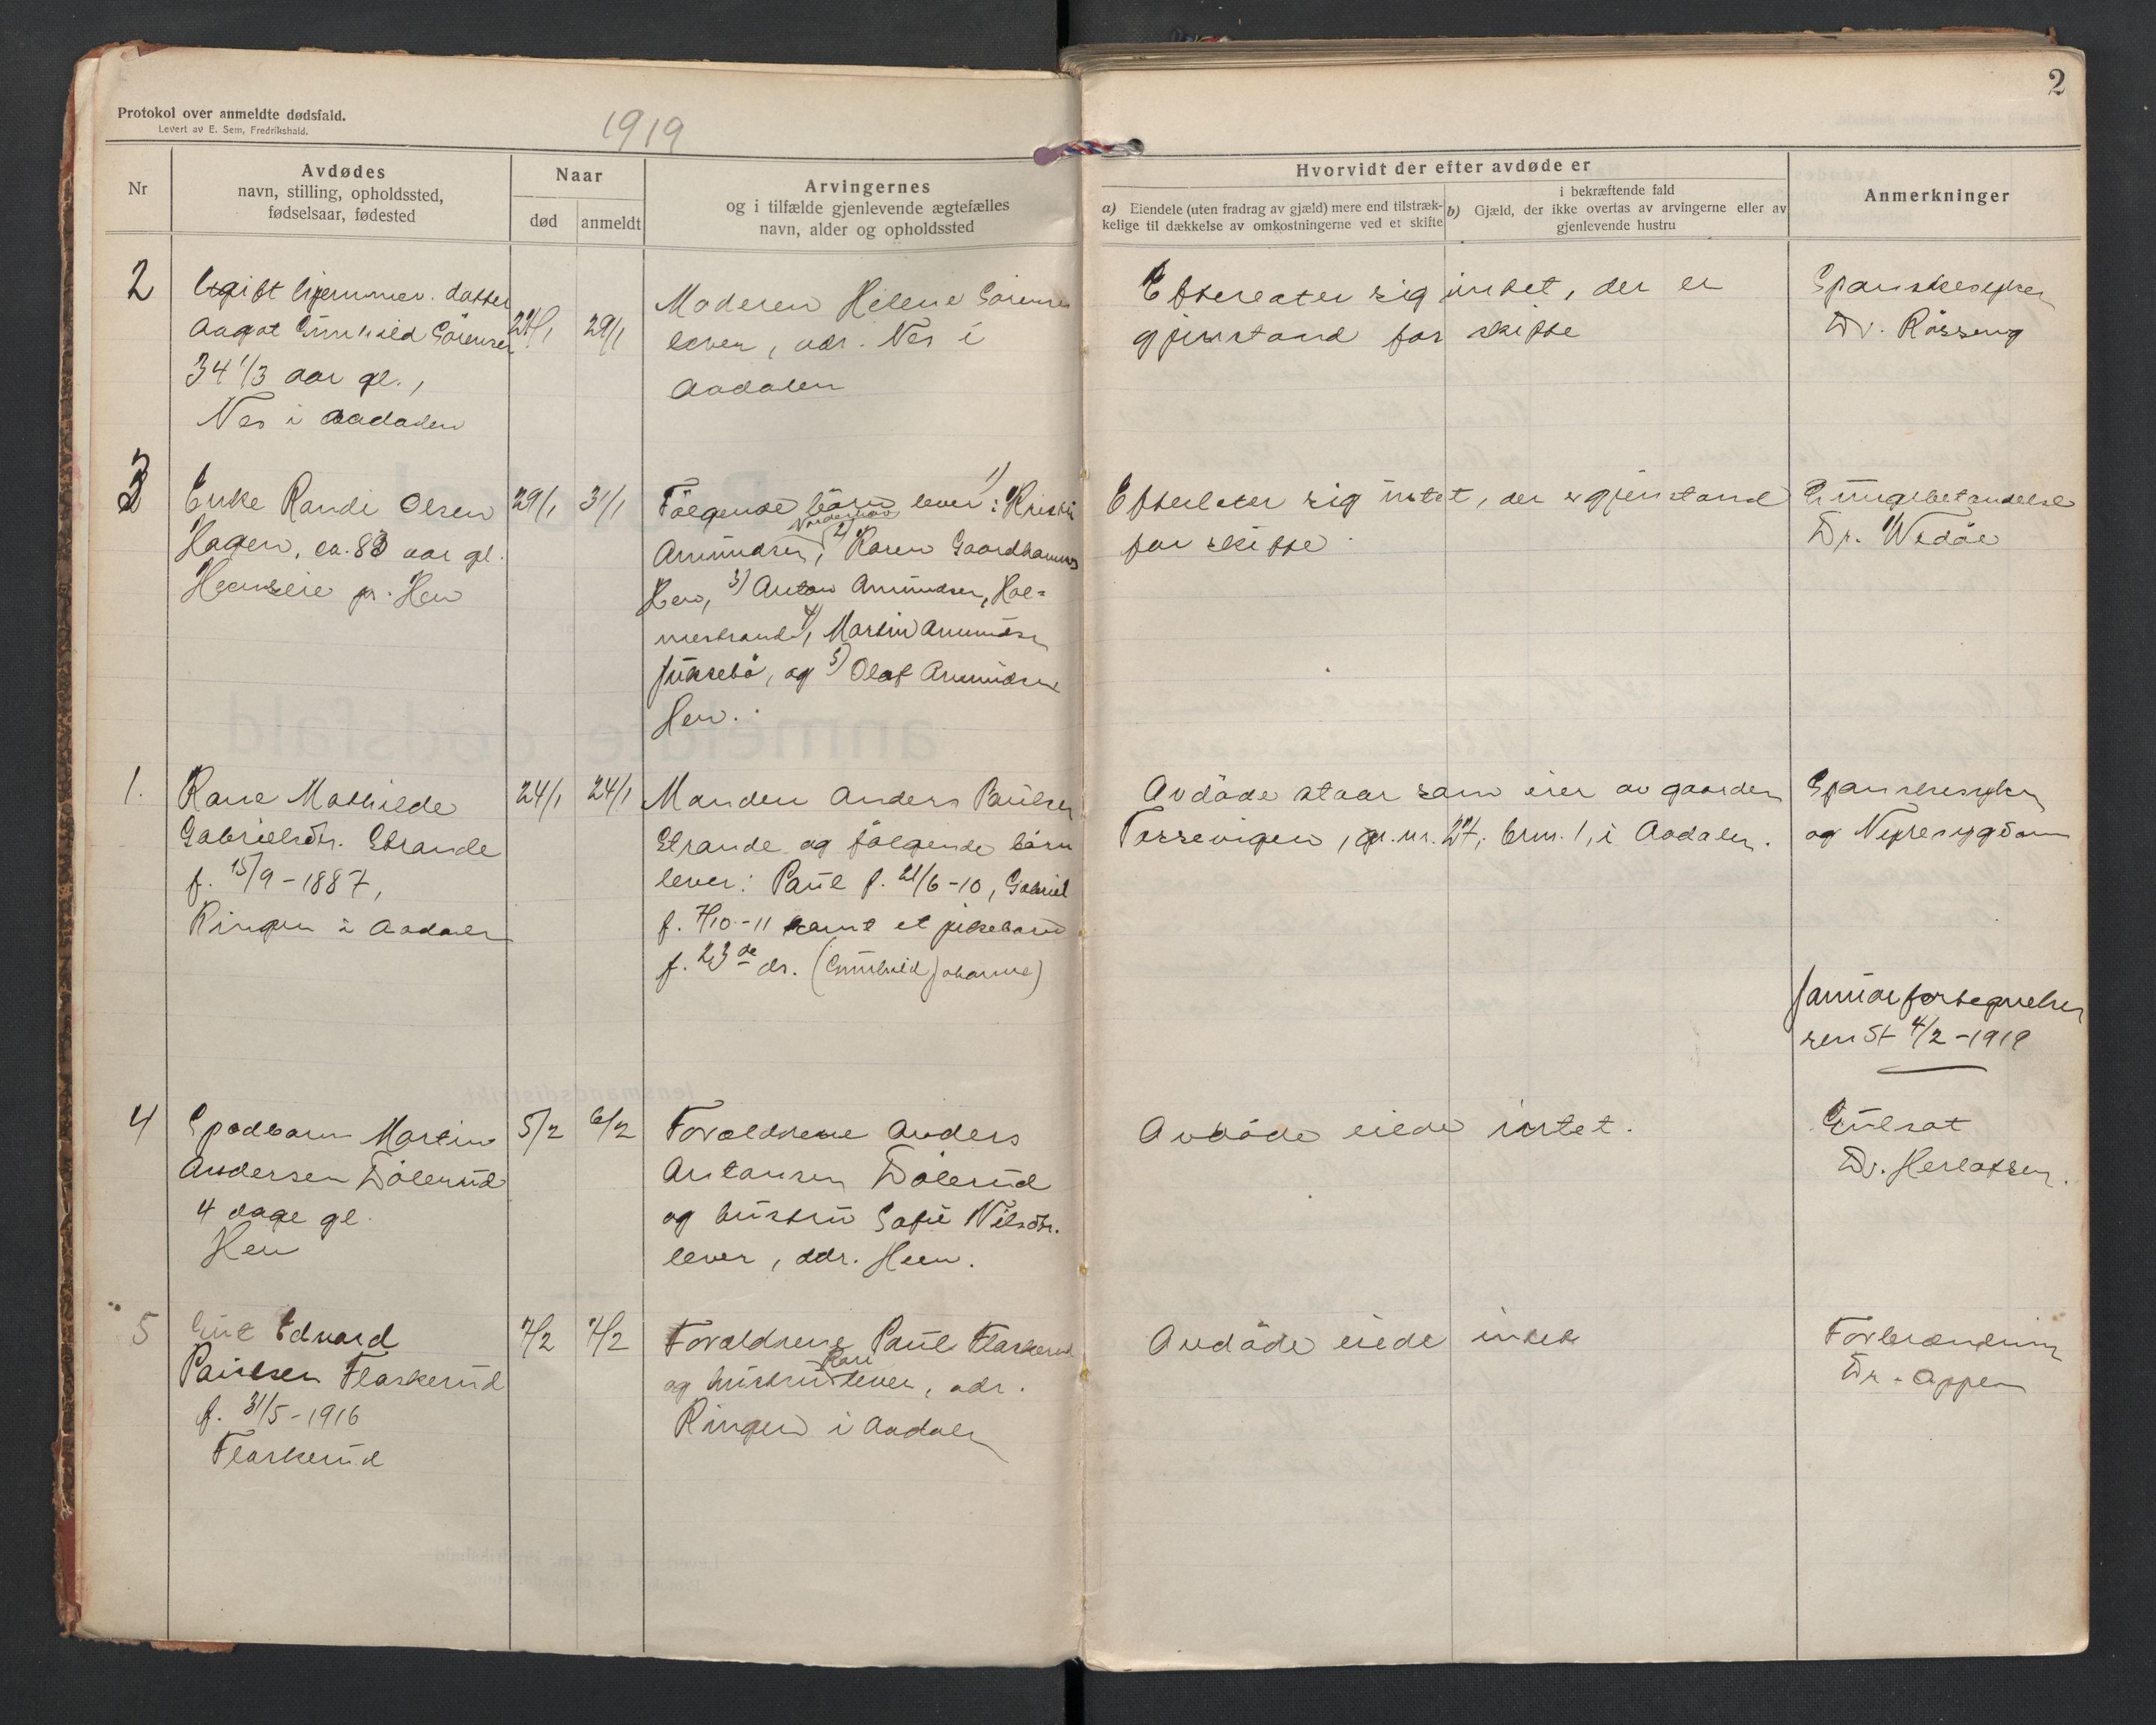 2
Protokol over anmeldte dødsfald.
Levert av E. Sem, Fredrikshald.
1919
Nr
Avdødes
navn, stilling, opholdssted,
fødselsaar, fødested
Naar
død
anmeldt
Arvingernes
og i tilfælde gjenlevende ægtefælles
navn, alder og opholdssted
Hvorvidt der efter avdøde er
a) Eiendele (uten fradrag av gjæld) mere end tilstræk-
kelige til dækkelse av omkostningerne ved et skifte
i bekræftende fald
b) Gjæld, der ikke overtas av arvingerne eller av
gjenlevende hustru
Anmerkninger
2
Ugift hjemmev. datter
Aagot Gunhild Sörensen
34 1/3 aar gl.,
Nes i Aadalen
29/1
Moderen Helene Sörensen
lever, adr. Nes i
Aadalen
Efterlater sig intet, der er
gjenstand for skifte
Spanskesyken
Dr. Rösseng
3
Enke Randi Olsen
Hagen, ca. 83 aar gl.
Heenseie pr. Hen
29/1
31/1
Fölgende börn lever: 1) Kristi
Amundsen, 2) Karen Gaardhammer
Hen, 3) Anton Amundsen, Hol-
mestrand, 4) Martin Amundsen
Juksebö, og 5) Olaf Amundsen
Hen.
Efterlater sig intet, der er gjenstand
for skifte.
Lungebetændelse
Dr. Wedöe
1.
Kane Mathilde
Gabrielsdtr. Strande
f. 15/9-1887,
Ringen i Aadalen
24/1
24/1
Manden Anders Paulsen
Strande og fölgende börn
lever: Paul f. 21/6-10, Gabriel
f. 7/10-11 samt et pikebarn
f. 23de ds. (Gunhild Johanne)
Avdöde staar som eier av gaarden
Tossevigen, gr. nr. 27, brnr. 1, i Aadalen.
Spanskesyken
og Nyresygdom
Januarfortegnelsen
sendt 4/2-1919
4
Spædbarn Martin
Andersen Dölerud
4 dage gl.
Hen
5/2
6/2
Forældrene Anders
Antonsen Dölerud
og hustru Sofie Nilsdtr.
lever, adr. Heen.
Avdöde eiede intet.
Gulsot
Dr. Herlofsen.
5
Gut Edvard
Paulsen Flaskerud
f. 31/5-1916
Flaskerud
7/2
7/2
Forældrene Paul Flaskerud
og hustru Kari lever, adr.
Ringen i Aadalen
Avdöde eiede intet
Forbrænding
Dr. Appen